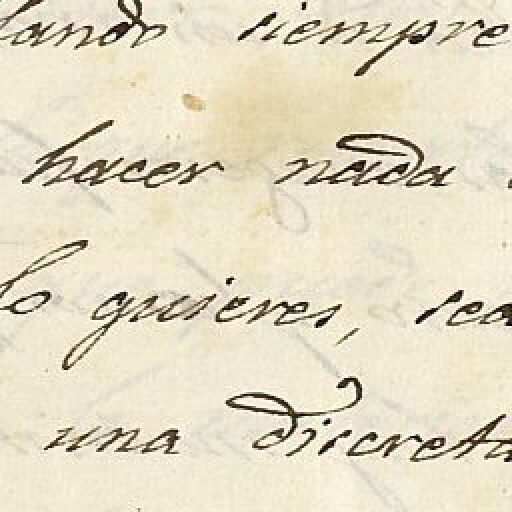 lando siempre
hacer nada
lo quieres, sea
una discreta